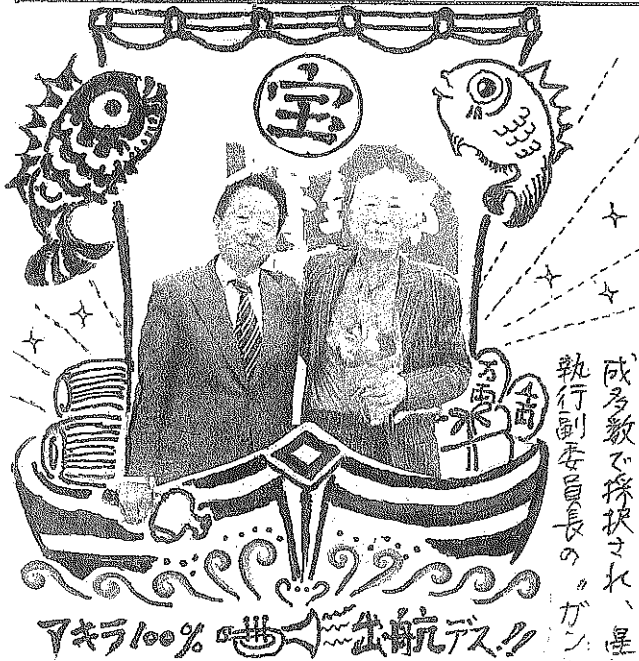 宝
成多数で採択され、星
執行副委員長の〝ガン
アキラ100%
出航デス!!